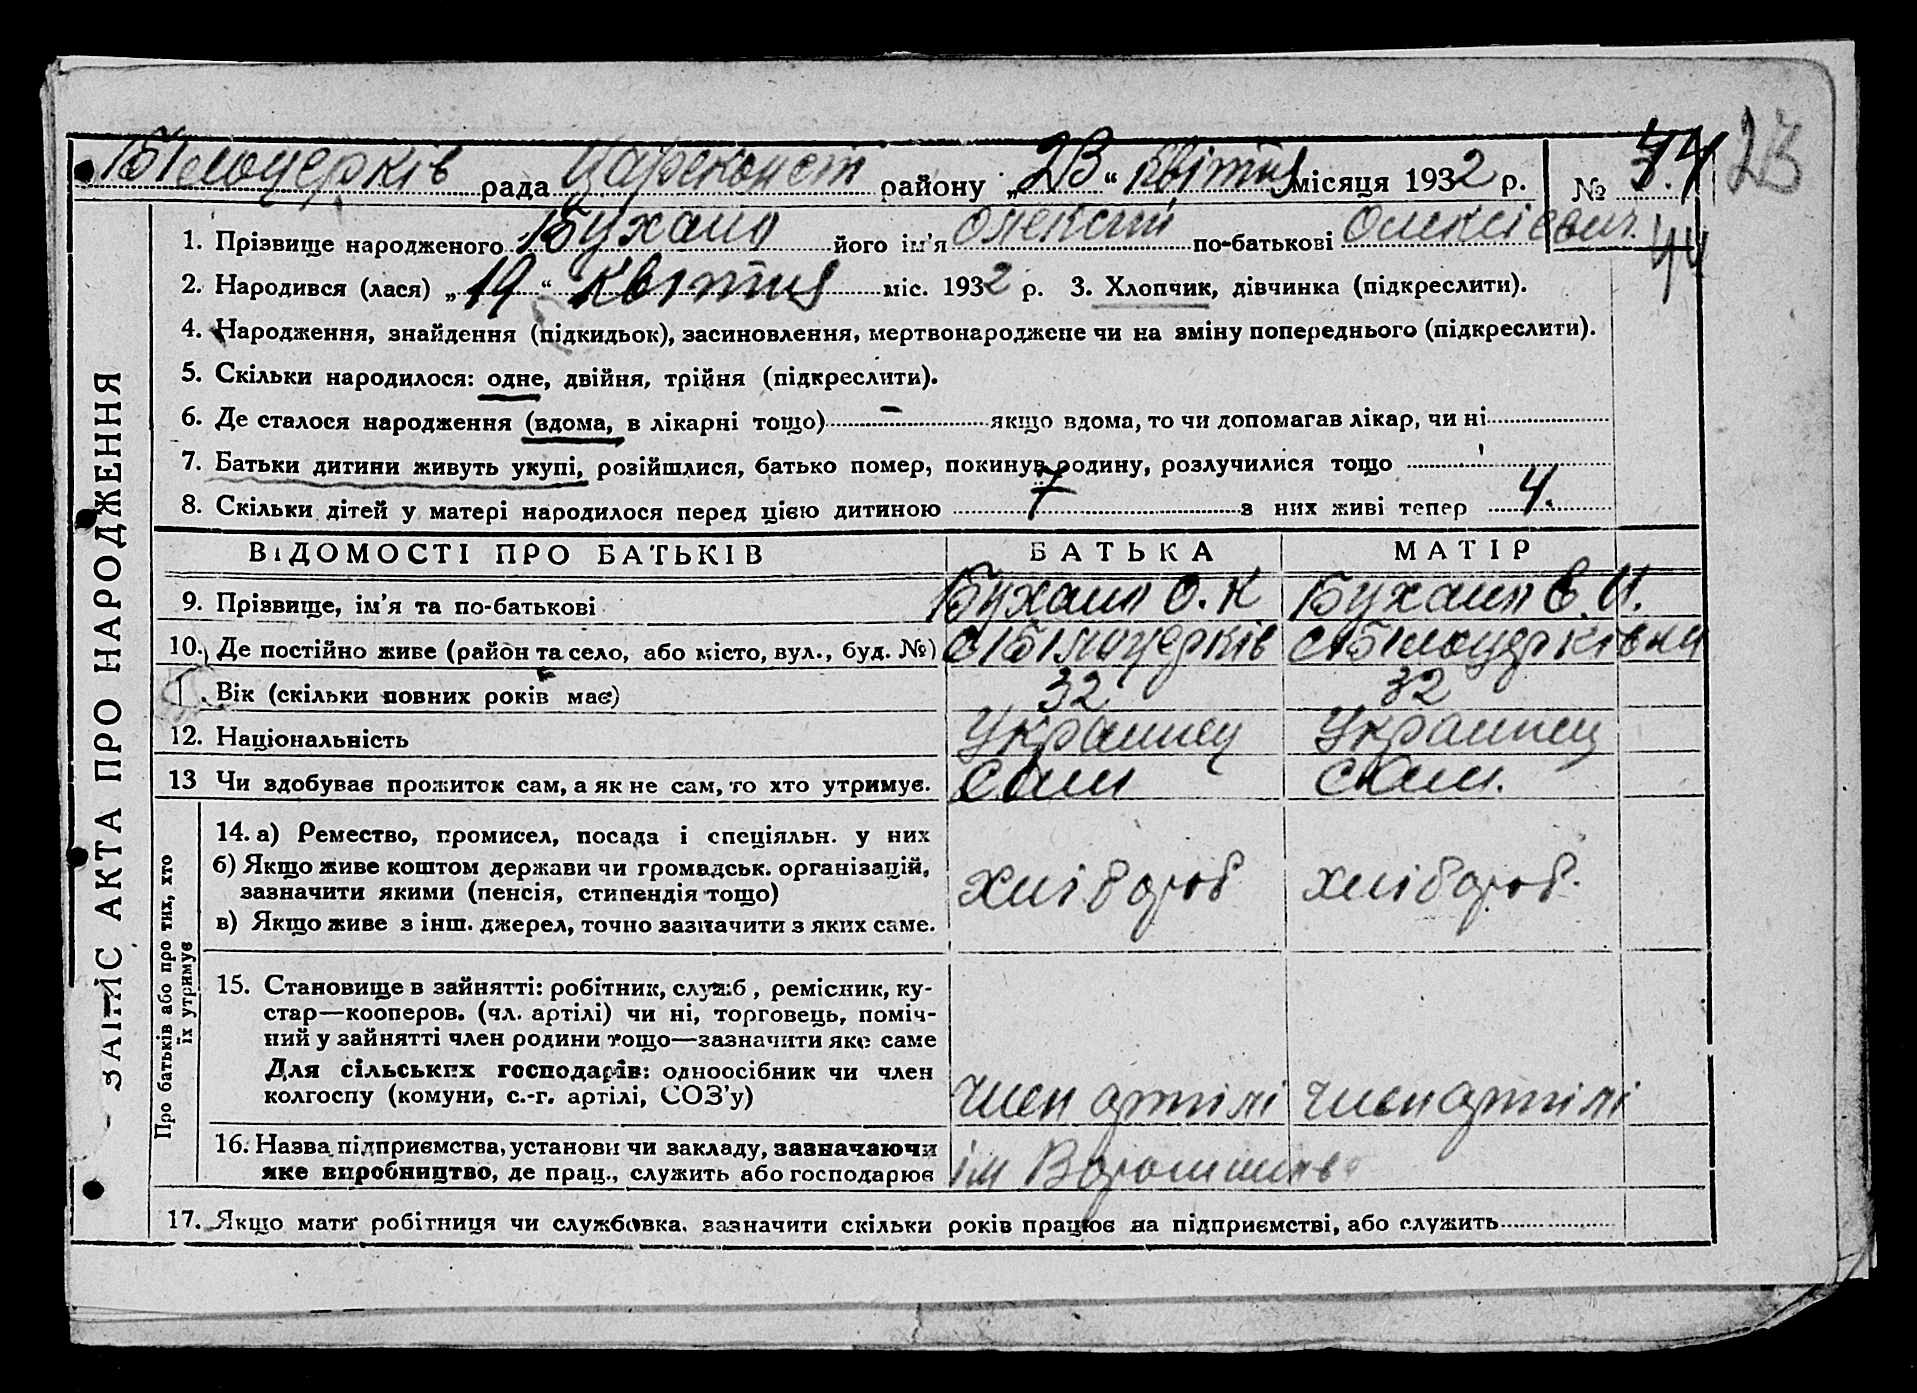 Білоцерків рада Царекონст району „23“ квітня місяця 1932 р. № 44 23
1. Прізвище народженого Бухало його ім'я Олексій по-батькові Олексієвич. 44
2. Народився (лася) „19“ квітня міс. 1932 р. 3. Хлопчик, дівчинка (підкреслити).
4. Народження, знайдення (підкидьок), засиновлення, мертвонароджене чи на зміну попереднього (підкреслити).
5. Скільки народилося: одне, двійня, трійня (підкреслити).
6. Де сталося народження (вдома, в лікарні тощо) — якщо вдома, то чи допомагав лікар, чи ні
7. Батьки дитини живуть укупі, розійшлися, батько помер, покинув родину, розлучилися тощо
8. Скільки дітей у матері народилося перед цією дитиною 7 з них живі тепер 4.
ЗАПИС АКТА ПРО НАРОДЖЕННЯ
ВІДОМОСТІ ПРО БАТЬКІВ БАТЬКА МАТІР
9. Прізвище, ім'я та по-батькові Бухало О. К Бухало Є. И.
10. Де постійно живе (район та село, або місто, вул., буд. №) с Білоцерків с Білоцерківки
Вік (скільки повних років має) 32 32
12. Національність Украинец Украинец
13 Чи здобуває прожиток сам, а як не сам, то хто утримує. сам сам.
Про батьків або про тих, хто їх утримує
14. а) Ремество, промисел, посада і спеціяльн. у них
б) Якщо живе коштом держави чи громадськ. організацій,
зазначити якими (пенсія, стипендія тощо) хлібороб хлібороб.
в) Якщо живе з інш. джерел, точно зазначити з яких саме.
15. Становище в зайнятті: робітник, служб, ремісник, ку-
стар—кооперов. (чл. артілі) чи ні, торговець, поміч-
ний у зайнятті член родини тощо—зазначити яке саме
Для сільських господарів: одноосібник чи член
колгоспу (комуни, с.-г. артілі, СОЗ'у) член артілі член артілі
16. Назва підприємства, установи чи закладу, зазначаючи
яке виробництво, де прац., служить або господарює ім Ворошилів
17. Якщо мати робітниця чи службовка, зазначити скільки років працює на підприємстві, або служить